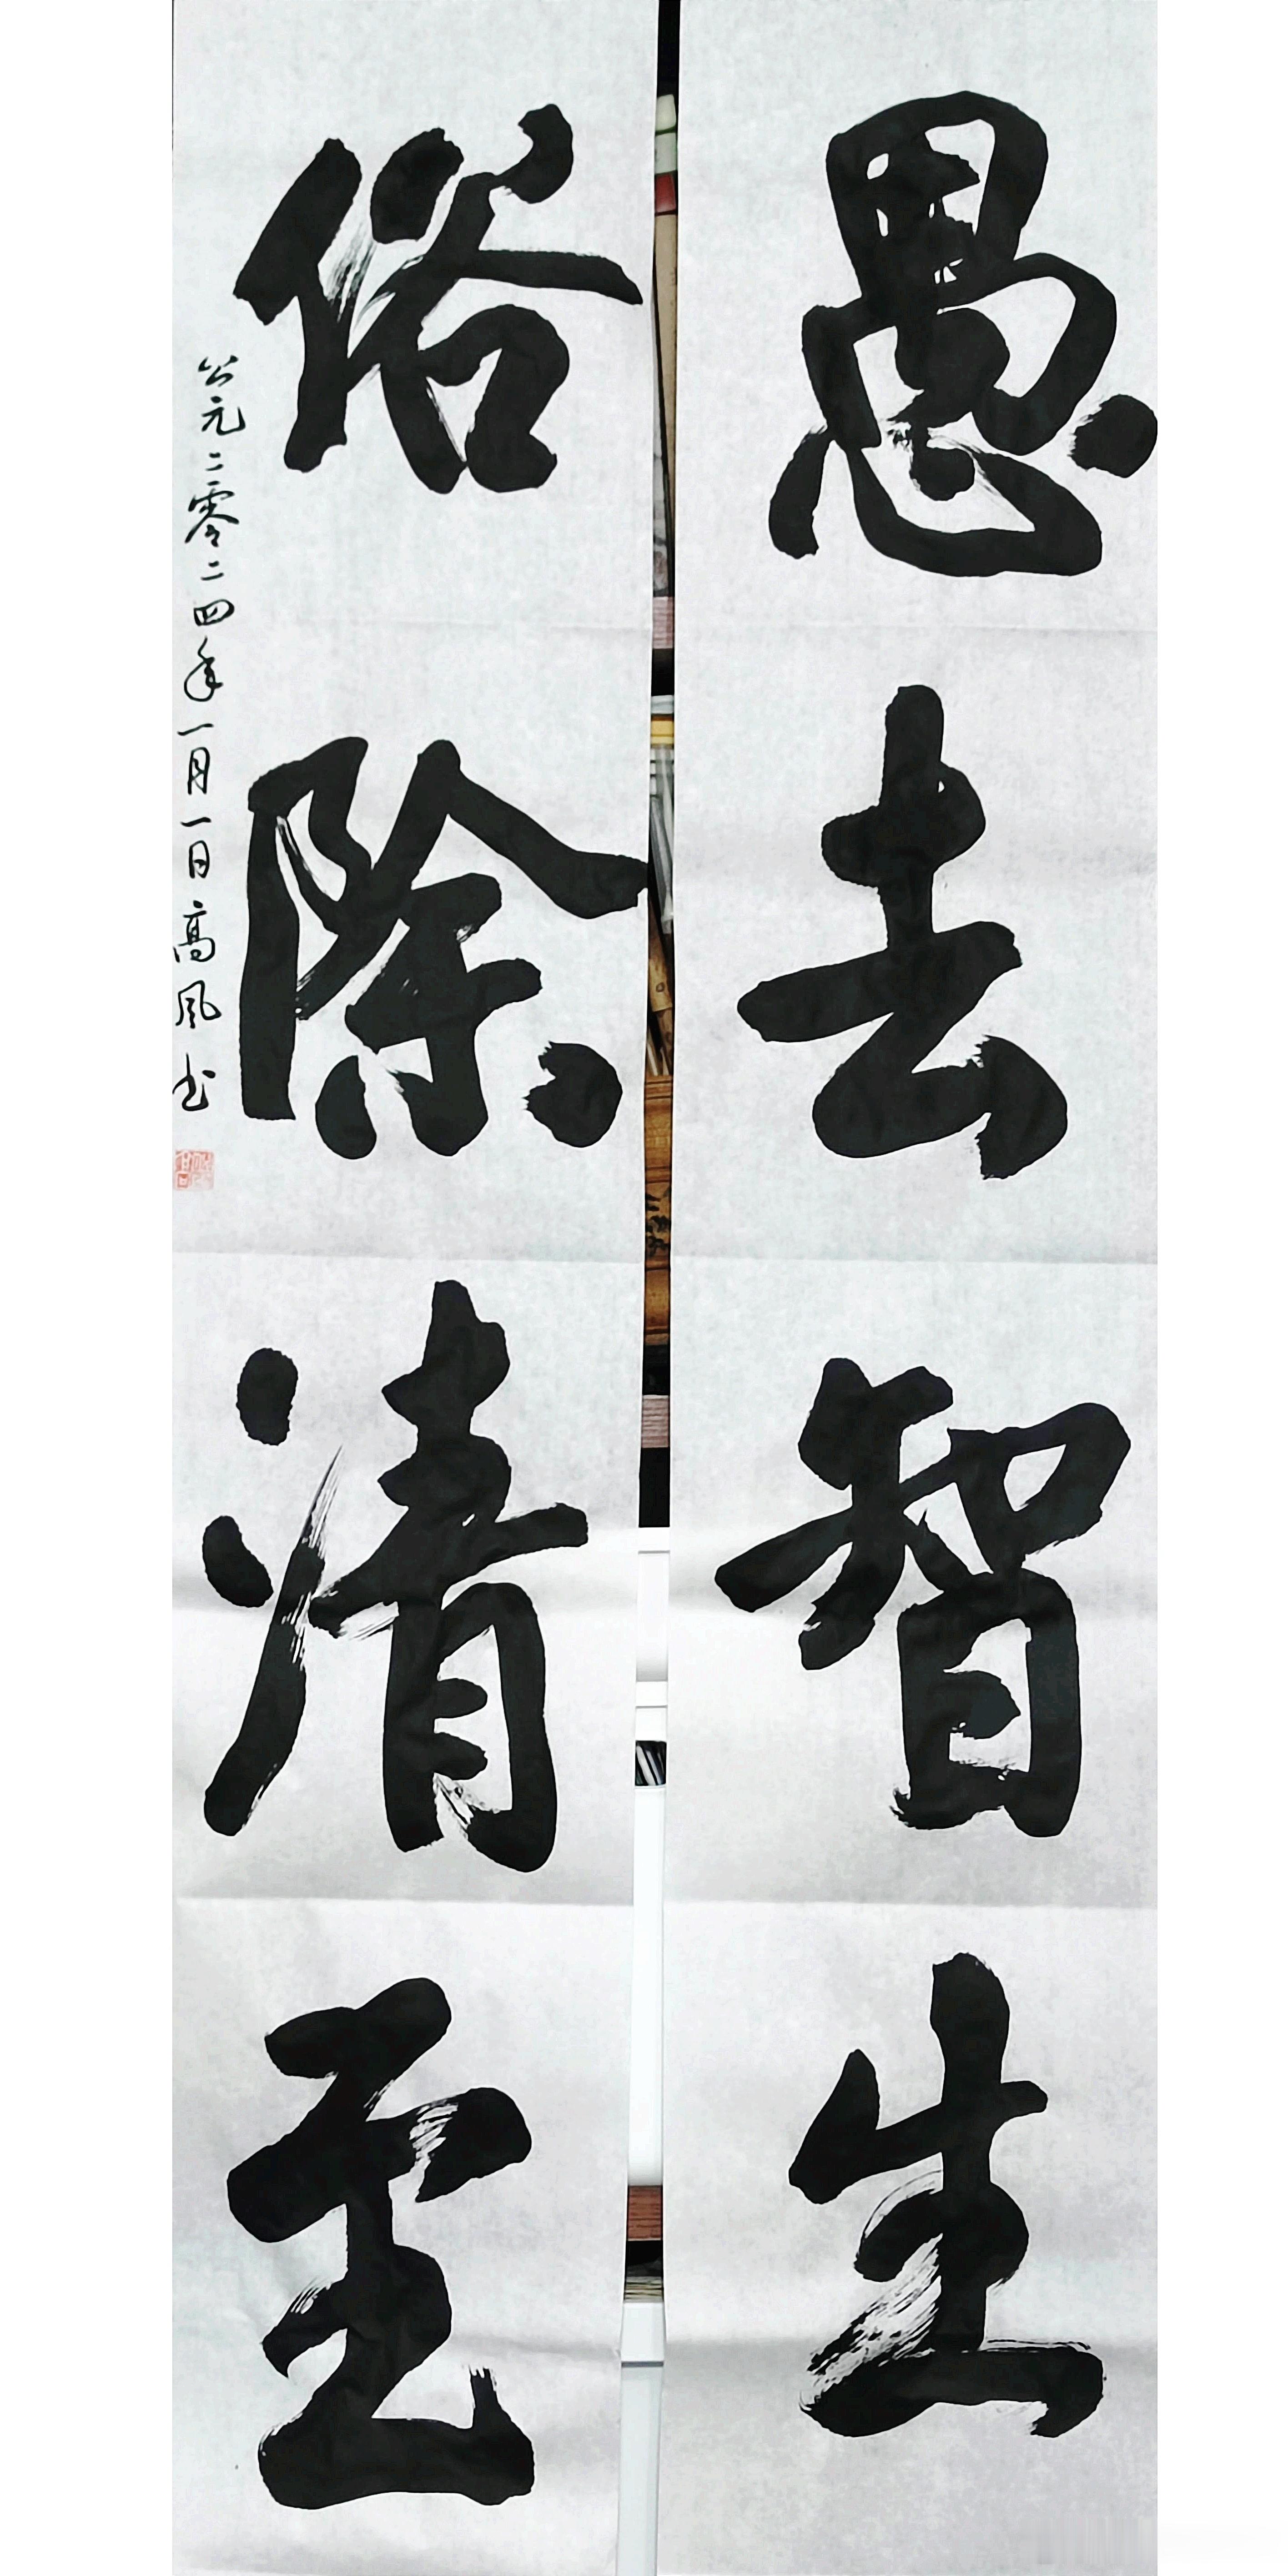 愚去智生
俗除清至
公元二零二四年一月一日高风书